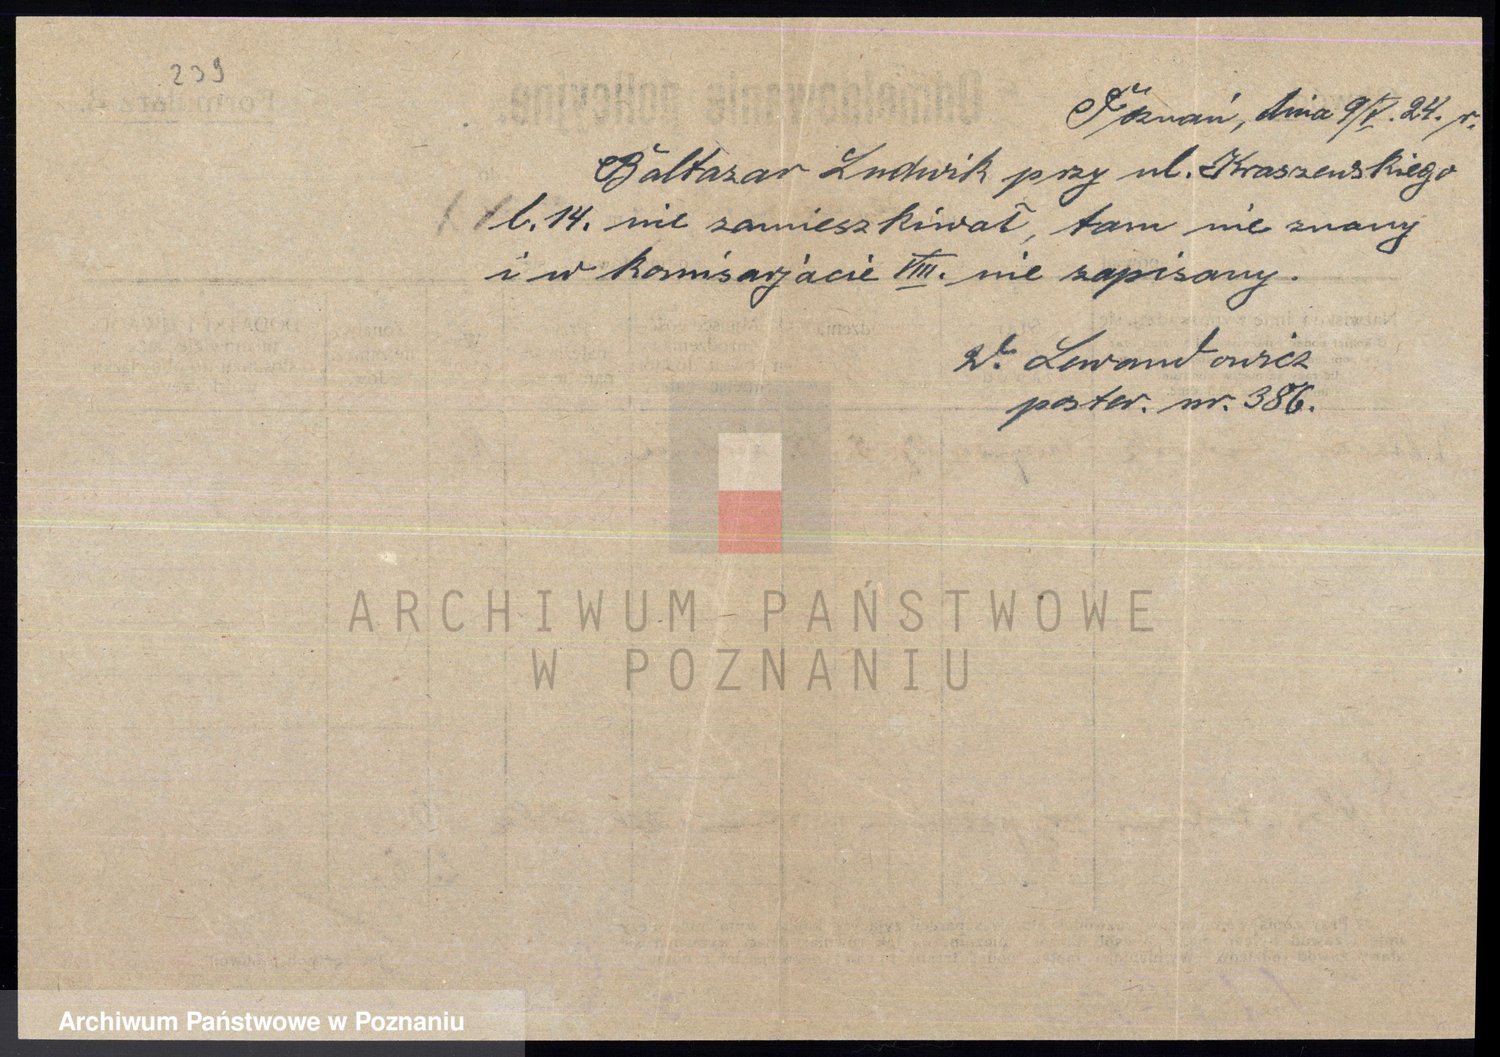 239
Poznań, dnia 9/V. 24. r.
Baltazar Ludwik przy ul. Kraszewskiego
l. 14. nie zamieszkiwał, tam nie znany
i w komisarjacie VIII. nie zapisany.
Lewandowicz
poster. nr. 386.
ARCHIWUM PAŃSTWOWE
W POZNANIU
Archiwum Państwowe w Poznaniu